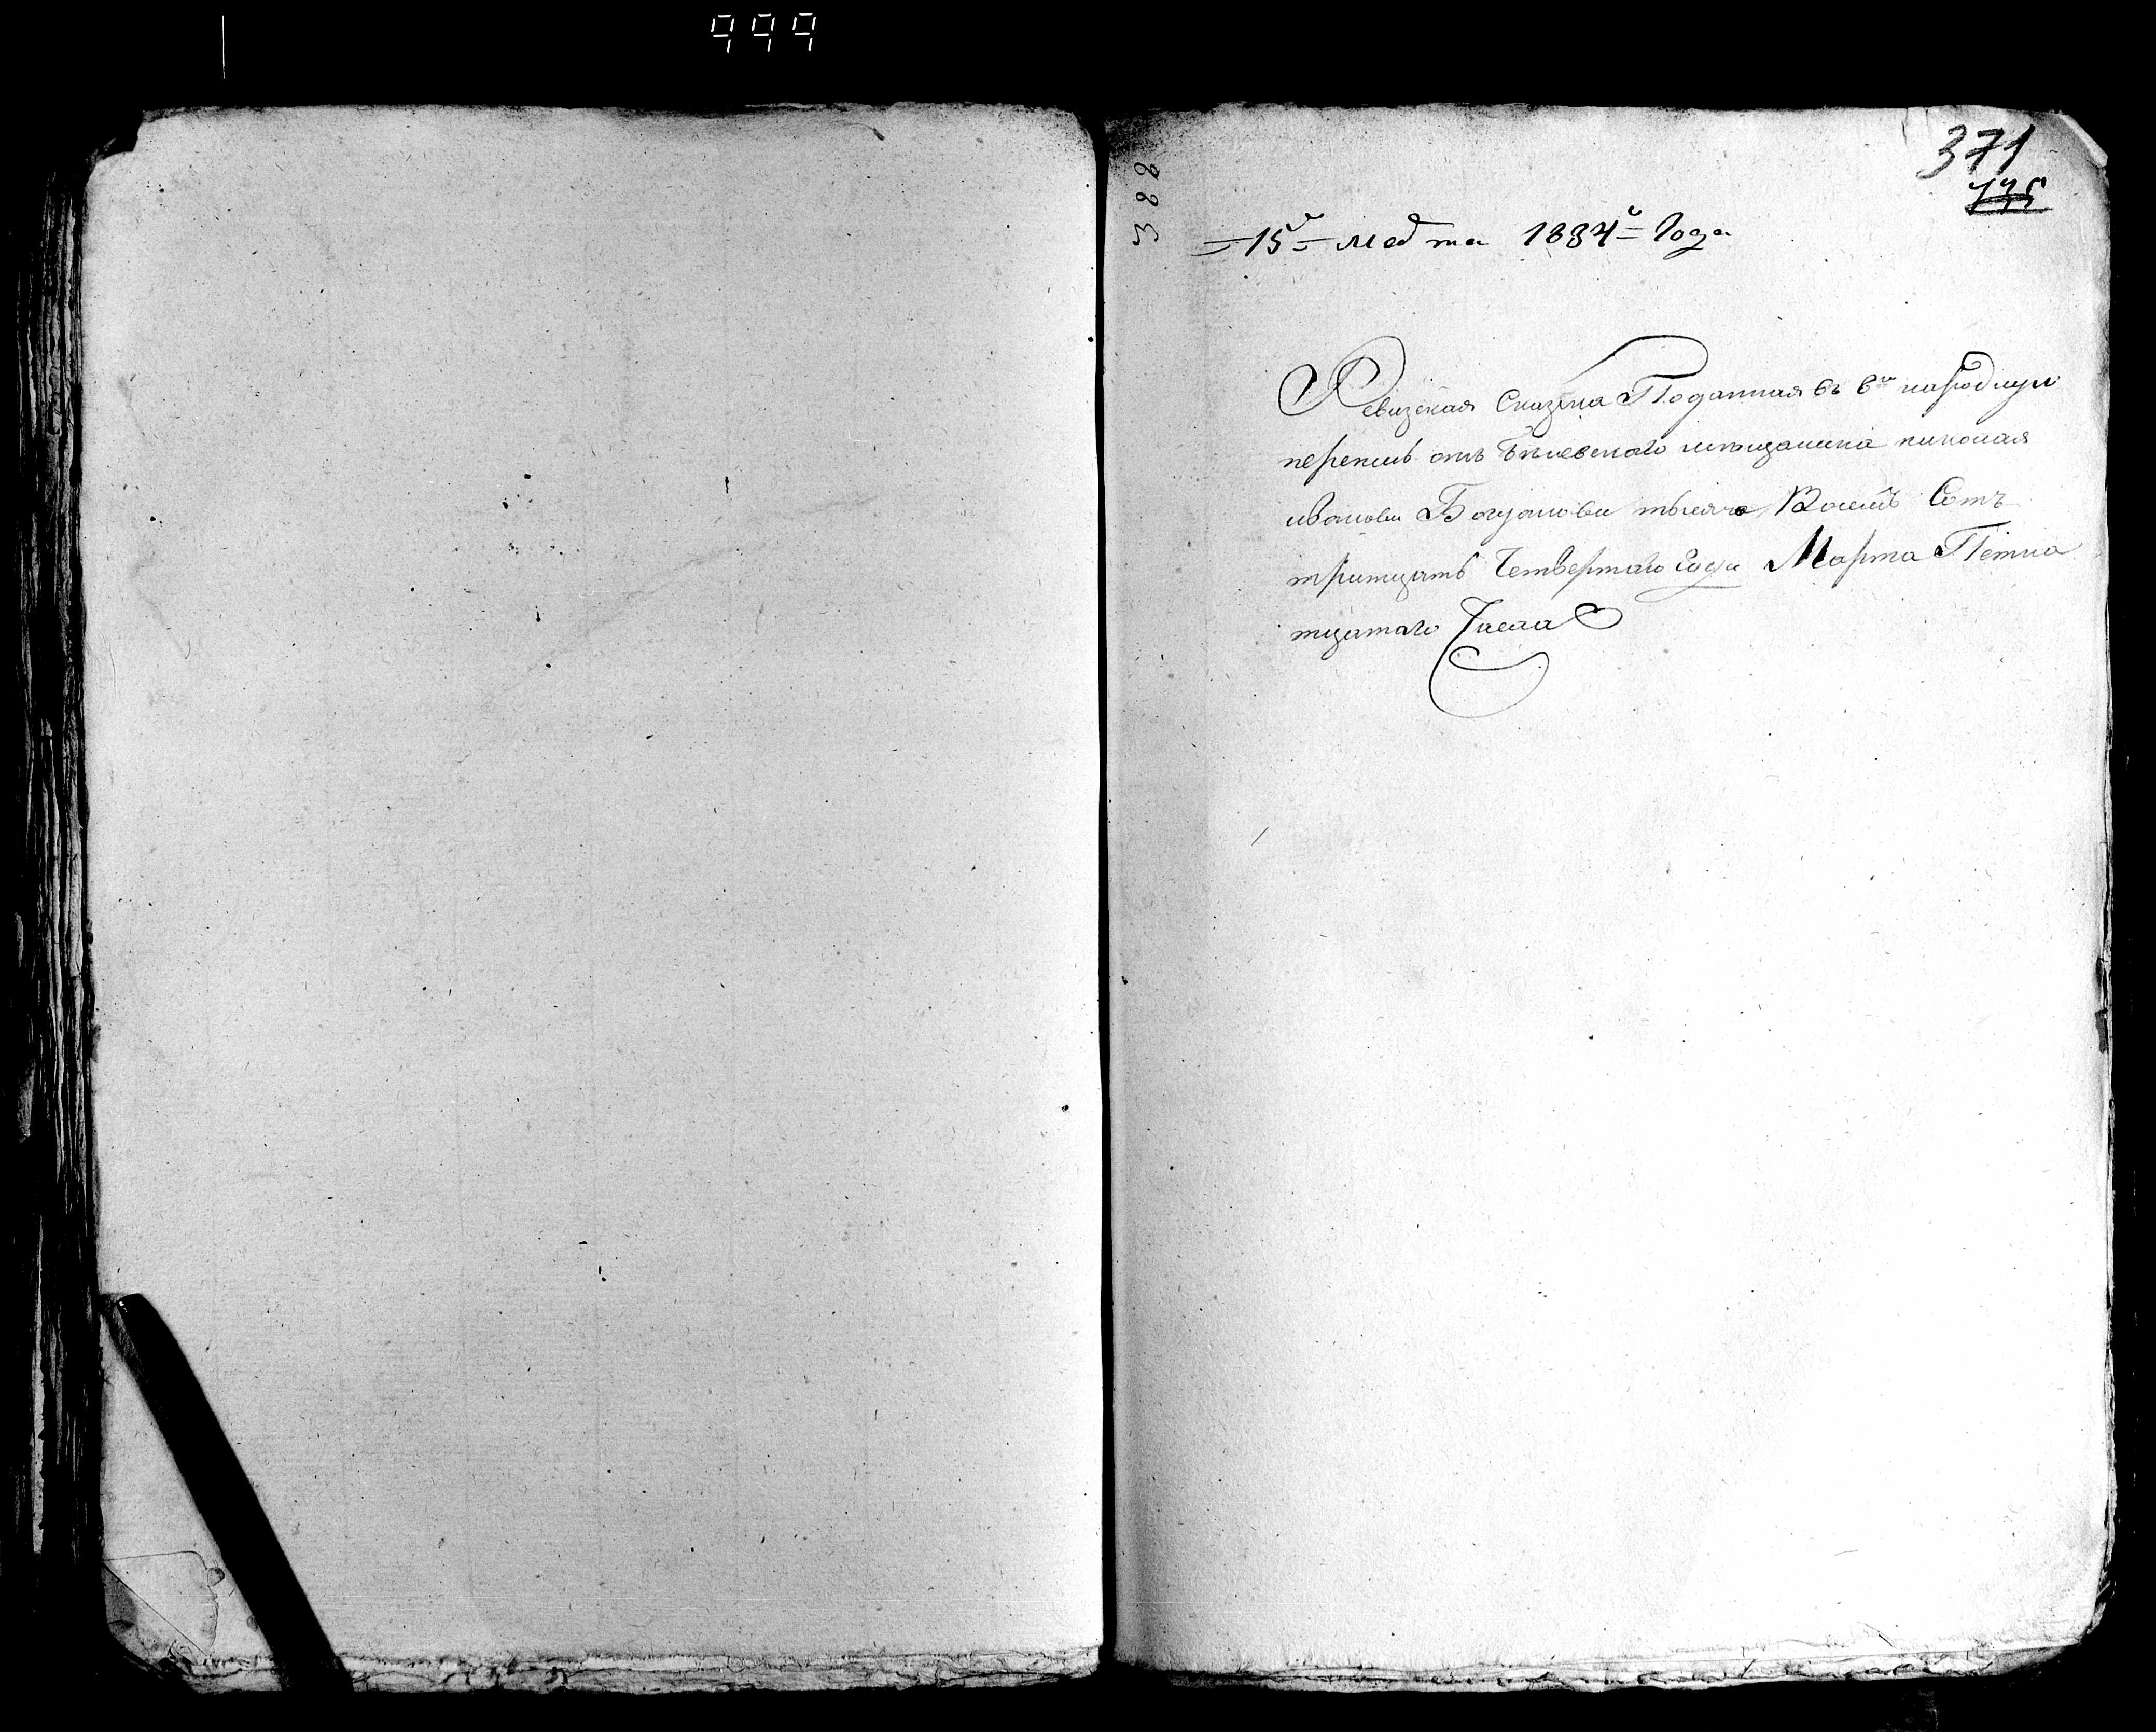 999
371
388
15 Марта 1834 Года
Ревизская Сказка Поданная въ 8ю народную
перепись отъ Белевскаго мещанина николая
иванова тысяча Восемь Сотъ
тритцать Четвертаго года Марта Петна
тцатаго Числа